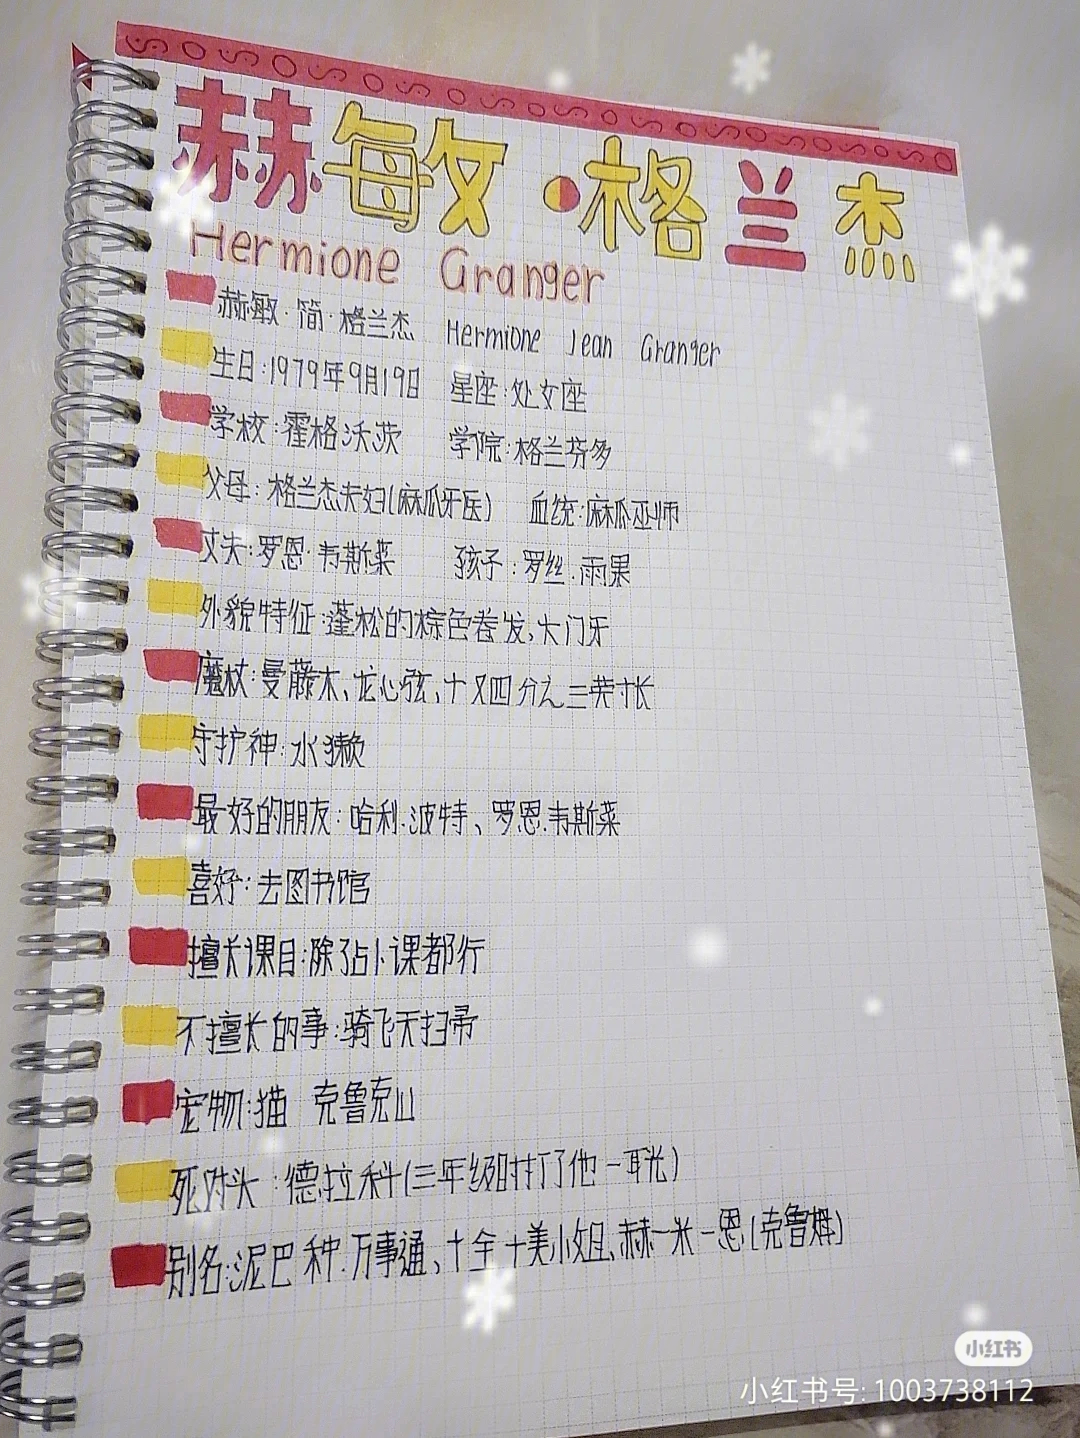 赫敏·格兰杰
Hermione Granger
赫敏·简·格兰杰 Hermione Jean Granger
生日:1979年9月19日 星座:处女座
学校:霍格沃茨 学院:格兰芬多
父母:格兰杰夫妇(麻瓜牙医) 血统:麻瓜巫师
丈夫:罗恩·韦斯莱 孩子:罗丝.雨果
外貌特征:蓬松的棕色卷发,大门牙
魔杖:曼藤木、龙心弦、十又四分之三英寸长
守护神:水獭
最好的朋友:哈利.波特、罗恩.韦斯莱
喜好:去图书馆
擅长课目:除了占卜课都行
不擅长的事:骑飞天扫帚
宠物:猫 克鲁克山
死对头:德拉科(三年级时打了他一耳光)
别名:泥巴种.万事通、十全十美小姐、赫一米一恩(克鲁姆)
小红书
小红书号: 1003738112